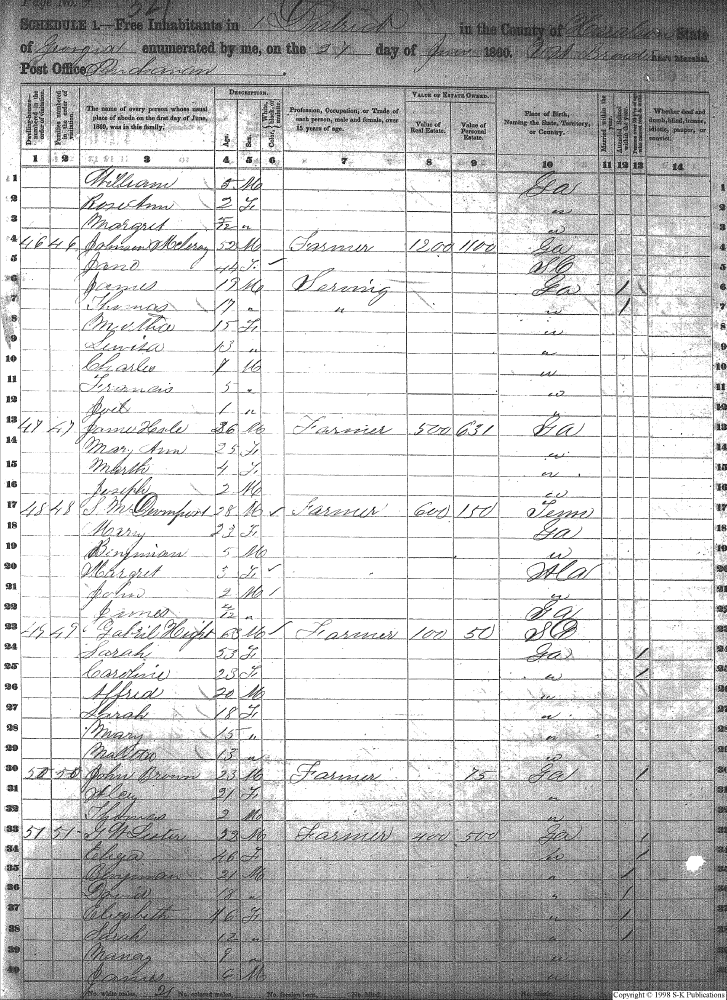 Page No. 
SCHEDULE 1.—Free Inhabitants in 1 District in the County of Haralson State
of Georgia enumerated by me, on the 21 day of June 1860. Ass't Marshal
Post Office Buchanan
Dwelling-houses—numbered in the order of visitation.
Families numbered in the order of visitation.
The name of every person whose usual place of abode on the first day of June, 1860, was in this family.
DESCRIPTION.
Age.
Sex.
Color, White, black, or mulatto.
Profession, Occupation, or Trade of each person, male and female, over 15 years of age.
VALUE OF ESTATE OWNED.
Value of Real Estate.
Value of Personal Estate.
Place of Birth, Naming the State, Territory, or Country.
Whether deaf and dumb, blind, insane, idiotic, pauper, or convict.
1 2 3 4 5 6 7 8 9 10 11 12 13 14
1 William 5 M Ga
2 Rose Ann 2 F "
3 Margret /12 " "
4 46 46 Johnson McElroy 52 M Farmer 1200 1100 Ga
5 Jane 44 F SC
6 James 19 M Serving Ga 1
7 Thomas 17 " " " 1
8 Martha 15 F "
9 Lewisa 13 " "
10 Charles 7 M "
11 Francis 5 " "
12 Joel 1 "
13 47 47 James Hole 26 M Farmer 500 631 Ga
14 Mary Ann 25 F "
15 Marth 4 F "
16 Joseph 2 M "
17 48 48 J M Davenport 28 M Farmer 600 150 Tenn
18 Mary 23 F Ga
19 Bingman 5 M "
20 Margret 3 F Ala
21 John 2 M "
22 James /12 " Ga
23 49 49 Gabril Hight 63 M Farmer 100 50 SC
24 Sarah 53 F Ga 1
25 Caroline 23 F " 1
26 Alfred 20 M "
27 Sarah 18 F "
28 Mary 15 " "
29 13 " "
30 50 50 John Brown 23 M Farmer 75 Ga 1
31 21 F "
32 Thomas 2 M "
33 51 51 G W Lester 52 M Farmer 400 500 Ga 1
34 Eliza 46 F " 1
35 21 M " 1
36 David 18 " " 1
37 Elizabeth 16 F " 1
38 Sarah 12 " " 1
39 Nancy 9 " "
40 James 6 M "
No. white males, No. colored males, No. foreign born, No. blind,
Copyright © 1998 S-K Publications